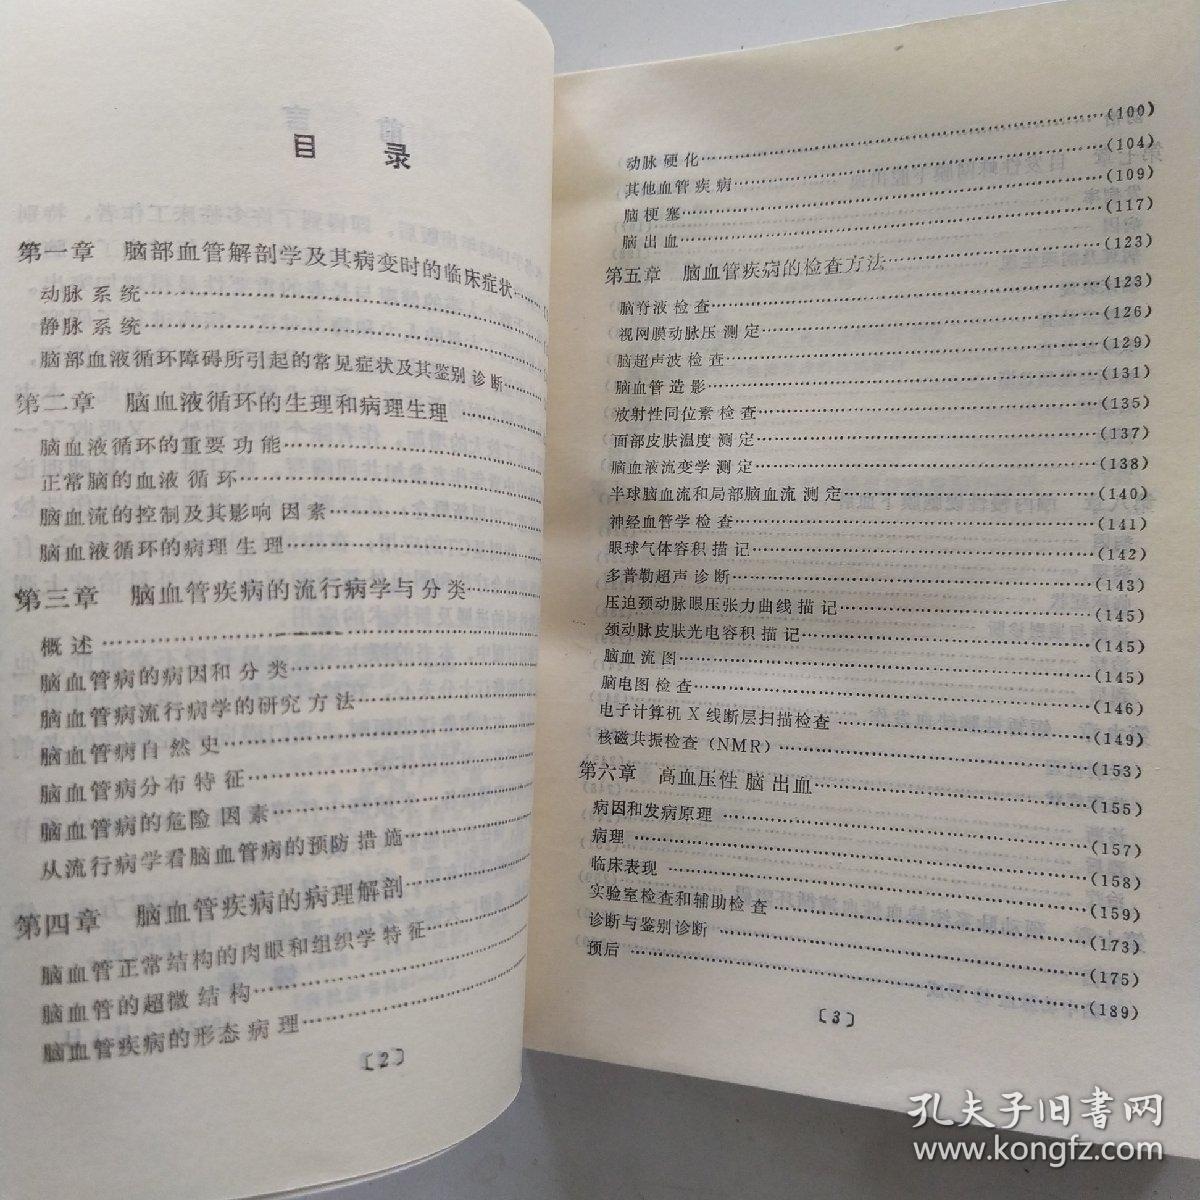 目 录
第一章 脑部血管解剖学及其病变时的临床症状……
动脉系统……
静脉系统……
脑部血液循环障碍所引起的常见症状及其鉴别诊断……
第二章 脑血液循环的生理和病理生理……
脑血液循环的重要功能……
正常脑的血液循环……
脑血流的控制及其影响因素……
脑血液循环的病理生理……
第三章 脑血管疾病的流行病学与分类……
概述……
脑血管病的病因和分类……
脑血管病流行病学的研究方法……
脑血管病自然史……
脑血管病分布特征……
脑血管病的危险因素……
从流行病学看脑血管病的预防措施……
第四章 脑血管疾病的病理解剖……
脑血管正常结构的肉眼和组织学特征……
脑血管的超微结构……
脑血管疾病的形态病理……
〔2〕
动脉硬化……(100)
其他血管疾病……(104)
脑梗塞……(109)
脑出血……(117)
第五章 脑血管疾病的检查方法……(123)
脑脊液检查……(123)
视网膜动脉压测定……(126)
脑超声波检查……(129)
脑血管造影……(131)
放射性同位素检查……(135)
面部皮肤温度测定……(137)
脑血液流变学测定……(138)
半球脑血流和局部脑血流测定……(140)
神经血管学检查……(141)
眼球气体容积描记……(142)
多普勒超声诊断……(143)
压迫颈动脉眼压张力曲线描记……(145)
颈动脉皮肤光电容积描记……(145)
脑血流图……(145)
脑电图检查……(146)
电子计算机X线断层扫描检查……(149)
核磁共振检查(NMR)……(153)
第六章 高血压性脑出血……(155)
病因和发病原理……(157)
病理……(158)
临床表现……(159)
实验室检查和辅助检查……(173)
诊断与鉴别诊断……(175)
预后……(189)
〔3〕
孔夫子旧书网
www.kongfz.com